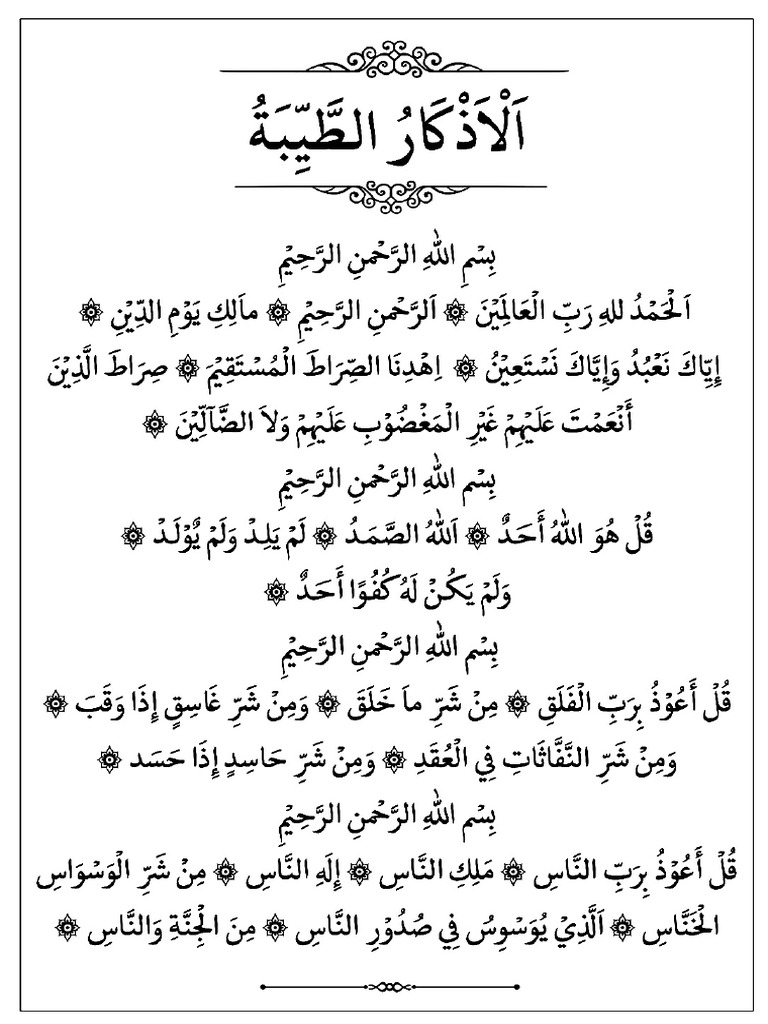 اَلْاَذْكَارُ الطَّيِّبَةُ
بِسْمِ اللهِ الرَّحْمنِ الرَّحِيْمِ
اَلْحَمْدُ للهِ رَبِّ الْعَالَمِيْنَ ۞ اَلرَّحْمنِ الرَّحِيْمِ ۞ ماَلِكِ يَوْمِ الدِّيْنِ ۞
إِيِّاكَ نَعْبُدُ وَإِيَّاكَ نَسْتَعِيْنُ ۞ اِهْدِنَا الصِّرَاطَ الْمُسْتَقِيْمَ ۞ صِرَاطَ الَّذِيْنَ
أَنْعَمْتَ عَلَيْهِمْ غَيْرِ الْمَغْضُوْبِ عَلَيْهِمْ وَلاَ الضَّآلِّيْنَ ۞
بِسْمِ اللهِ الرَّحْمنِ الرَّحِيْمِ
قُلْ هُوَ اللهُ أَحَدٌ ۞ اَللهُ الصَّمَدُ ۞ لَمْ يَلِدْ وَلَمْ يُوْلَدْ ۞
وَلَمْ يَكُنْ لَهُ كُفُوًا أَحَدٌ ۞
بِسْمِ اللهِ الرَّحْمنِ الرَّحِيْمِ
قُلْ أَعُوْذُ بِرَبِّ الْفَلَقِ ۞ مِنْ شَرِّ ماَ خَلَقَ ۞ وَمِنْ شَرِّ غَاسِقٍ إِذَا وَقَبَ ۞
وَمِنْ شَرِّ النَّفَّاثَاتِ فِي الْعُقَدِ ۞ وَمِنْ شَرِّ حَاسِدٍ إِذَا حَسَد ۞
بِسْمِ اللهِ الرَّحْمنِ الرَّحِيْمِ
قُلْ أَعُوْذُ بِرَبِّ النَّاسِ ۞ مَلِكِ النَّاسِ ۞ إِلَهِ النَّاسِ ۞ مِنْ شَرِّ الْوَسْوَاسِ
الْخَنَّاسِ ۞ اَلَّذِيْ يُوَسْوِسُ فِي صُدُوْرِ النَّاسِ ۞ مِنَ الْجِنَّةِ وَالنَّاسِ ۞